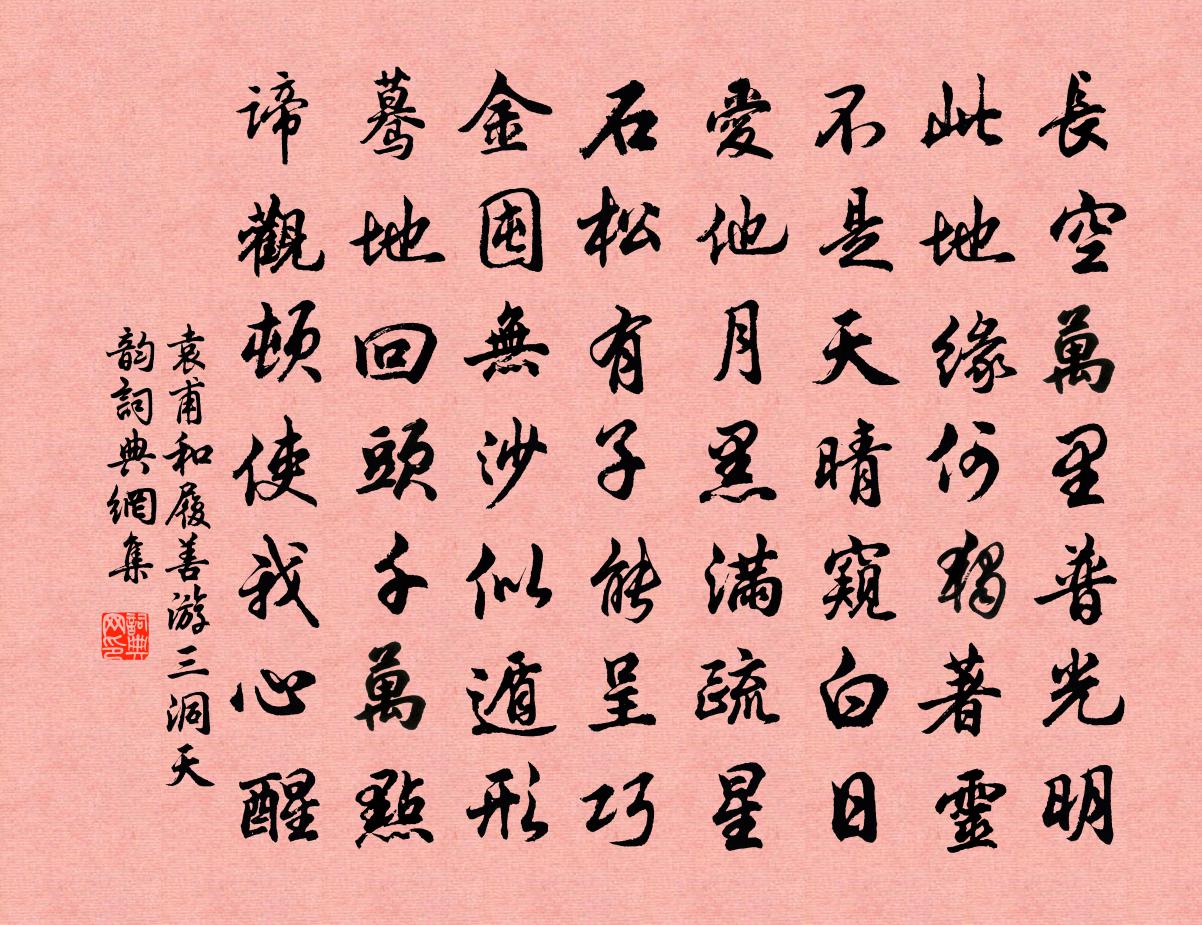 長空萬里普光明
此地緣何獨著靈
不是天晴窺白日
愛他月黑滿疏星
石松有子能呈巧
金囤無沙似遁形
驀地回頭千萬點
諦觀頓使我心醒
袁甫和履善游三洞天
韵詞典網集
詞典网印